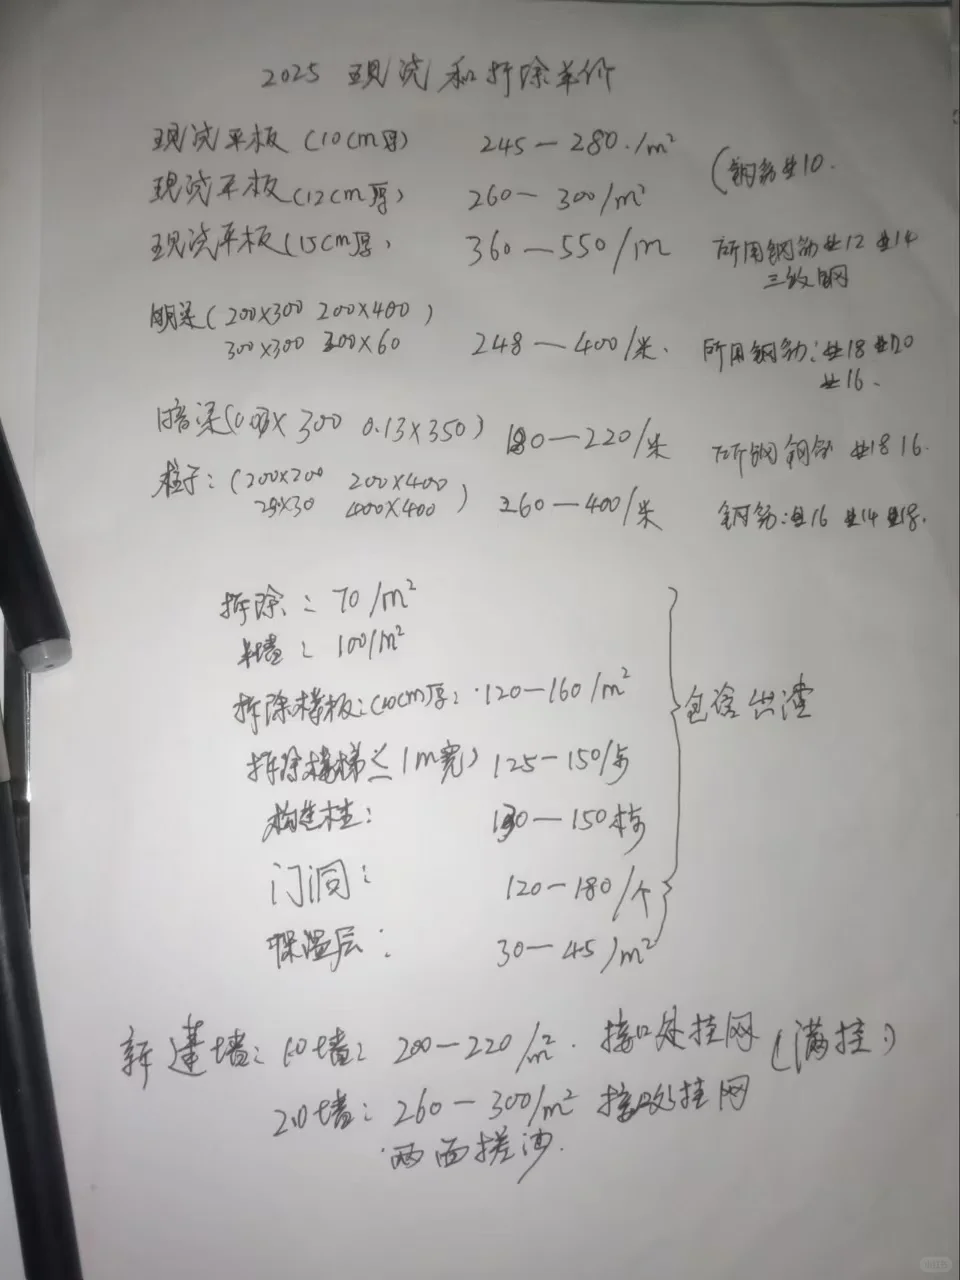 2025 现浇和拆除单价
现浇平板 (10cm厚) 245-280./m² (钢筋#10.
现浇平板(12cm厚) 260-300/m²
现浇平板(15cm厚, 360-550/m 所用钢筋#12 #14
三级钢
明梁(200×300 200×400)
300×300 300×60 248-400/米. 所用钢筋:#18 #20
#16.
暗梁( × 300 0.13×350) 180-220/米 所钢钢筋 #18 16.
柱子:(200×200 200×400
25×30 400×400) 260-400/米 钢筋:#16 #14 #18.
拆除:70/m²
墙:100/m²
拆除楼板:(10cm厚: 120-160/m²
包含出渣
拆除楼梯≤1m宽) 125-150/步
构造柱: 130-150
门洞: 120-180/个
保温层: 30-45/m²
新建墙:10墙:200-220/m². 接口处挂网(满挂.)
20墙:260-300/m² 接口处挂网
两面搓沙.